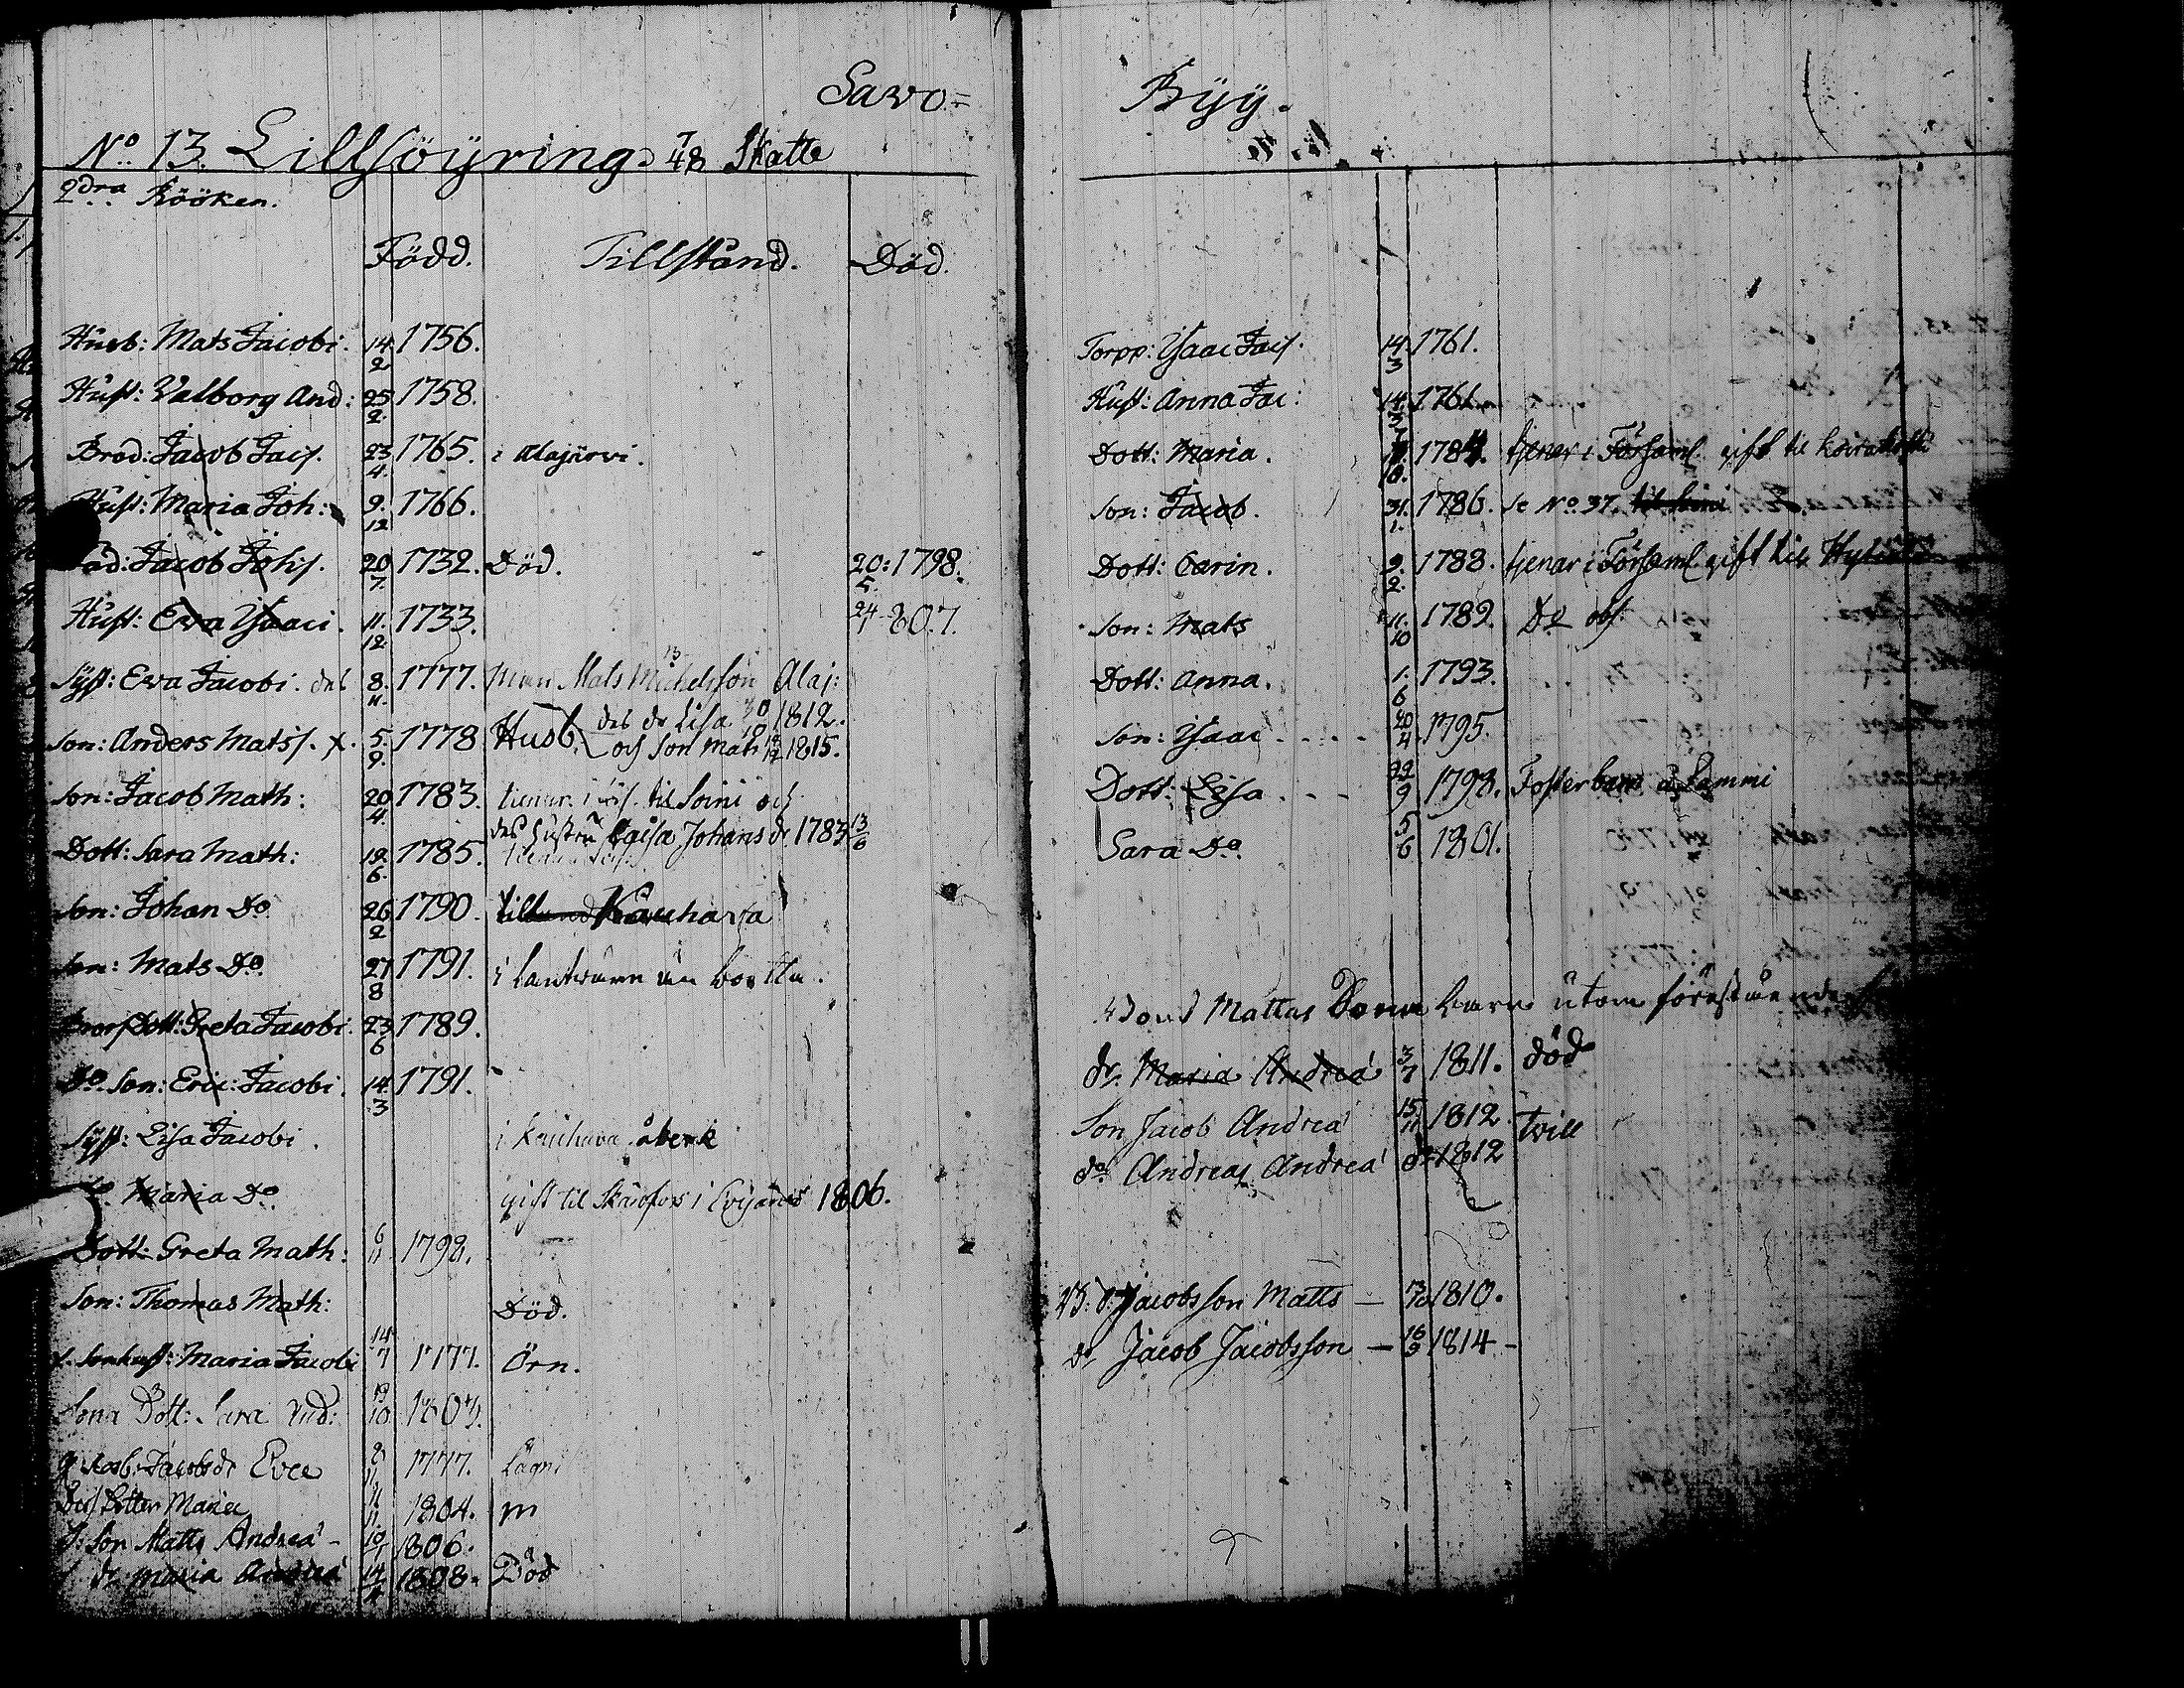 Savo=
No. 13. Lillsöyring. 7/48 Skatte
2dra Rööken.
Född. Tillstånd. Död.
Husb: Mats Jacobi. 14/2 1756.
Hust: Valborg And: 25/2. 1758.
Brod: Jacob Jacs. 23/4. 1765. i Alajärvi.
Hust: Maria Joh: 9./12 1766.
Fad: Jacob Johs. 20/7. 1732. Död. 20:/5. 1798.
Hust: Eva Ysaaci. 11./12. 1733. 24/1 807.
Syst: Eva Jacobi. des 8./11. 1777. man Mats Michelsson Alaj:
Son: Anders Matss. x. 5./9. 1778 Husb. des dr Lisa 30/10 1812.
och Son Mats 1815.
Son: Jacob Math: 20/4. 1783. til Soini och
des hustru Caisa Johans dr 1783 13/6
Dott: Sara Math: 19./6. 1785.
Son: Johan Do. 26/2 1790. Kauhava
Son: Mats Do. 27/8 1791. i
Brors Dott: Greta Jacobi. 23/6 1789.
Do. Son: Eric: Jacobi. 14/3 1791.
Syst: Lisa Jacobi. i Kauhava
Maria Do. gift til i Evijärvi 1806.
Dott: Greta Math: 6/11 1798.
Son: Thomas Math: Död.
x. Sonhust: Maria Jacobi 14/7 1777. Örn.
Sona Dott: Sara And: 19/10 1803.
Jacobsdr Eva 8/11 1777.
Des Dotter Maria 11/11. 1804. m
S: Son Matts Andreæ - 10/1 1806.
dr Maria Andreæ 14/4 1808. Död
Byy.
Torpp: Ysaac Jacs. 14./3 1761.
Hust: Anna Jac: 14./3 1761.
Dott: Maria. 1784. tjenar i Församl. gift til
Son: Jacob. 31./1. 1786. Se No. 37.
Dott: Carin. 9./2. 1788. tjenar i Församl gift til
Son: Mats 11./10 1789. Do
Dott: Anna. 1./6 1793.
Son: Ysaac - - - - 20/4 1795.
Dott: Lisa - - - 22/9 1798. Fosterbarn å Lammi
Sara Do. 5/6 1801.
barn utom förestående
dr. Maria Andreæ 3/7 1811. död
Son Jacob Andreæ 15/11 1812 tvill
do. Andreas Andreæ do 1812
Jacobsson Matts — 1810.
do Jacob Jacobsson — 16/9 1814 -